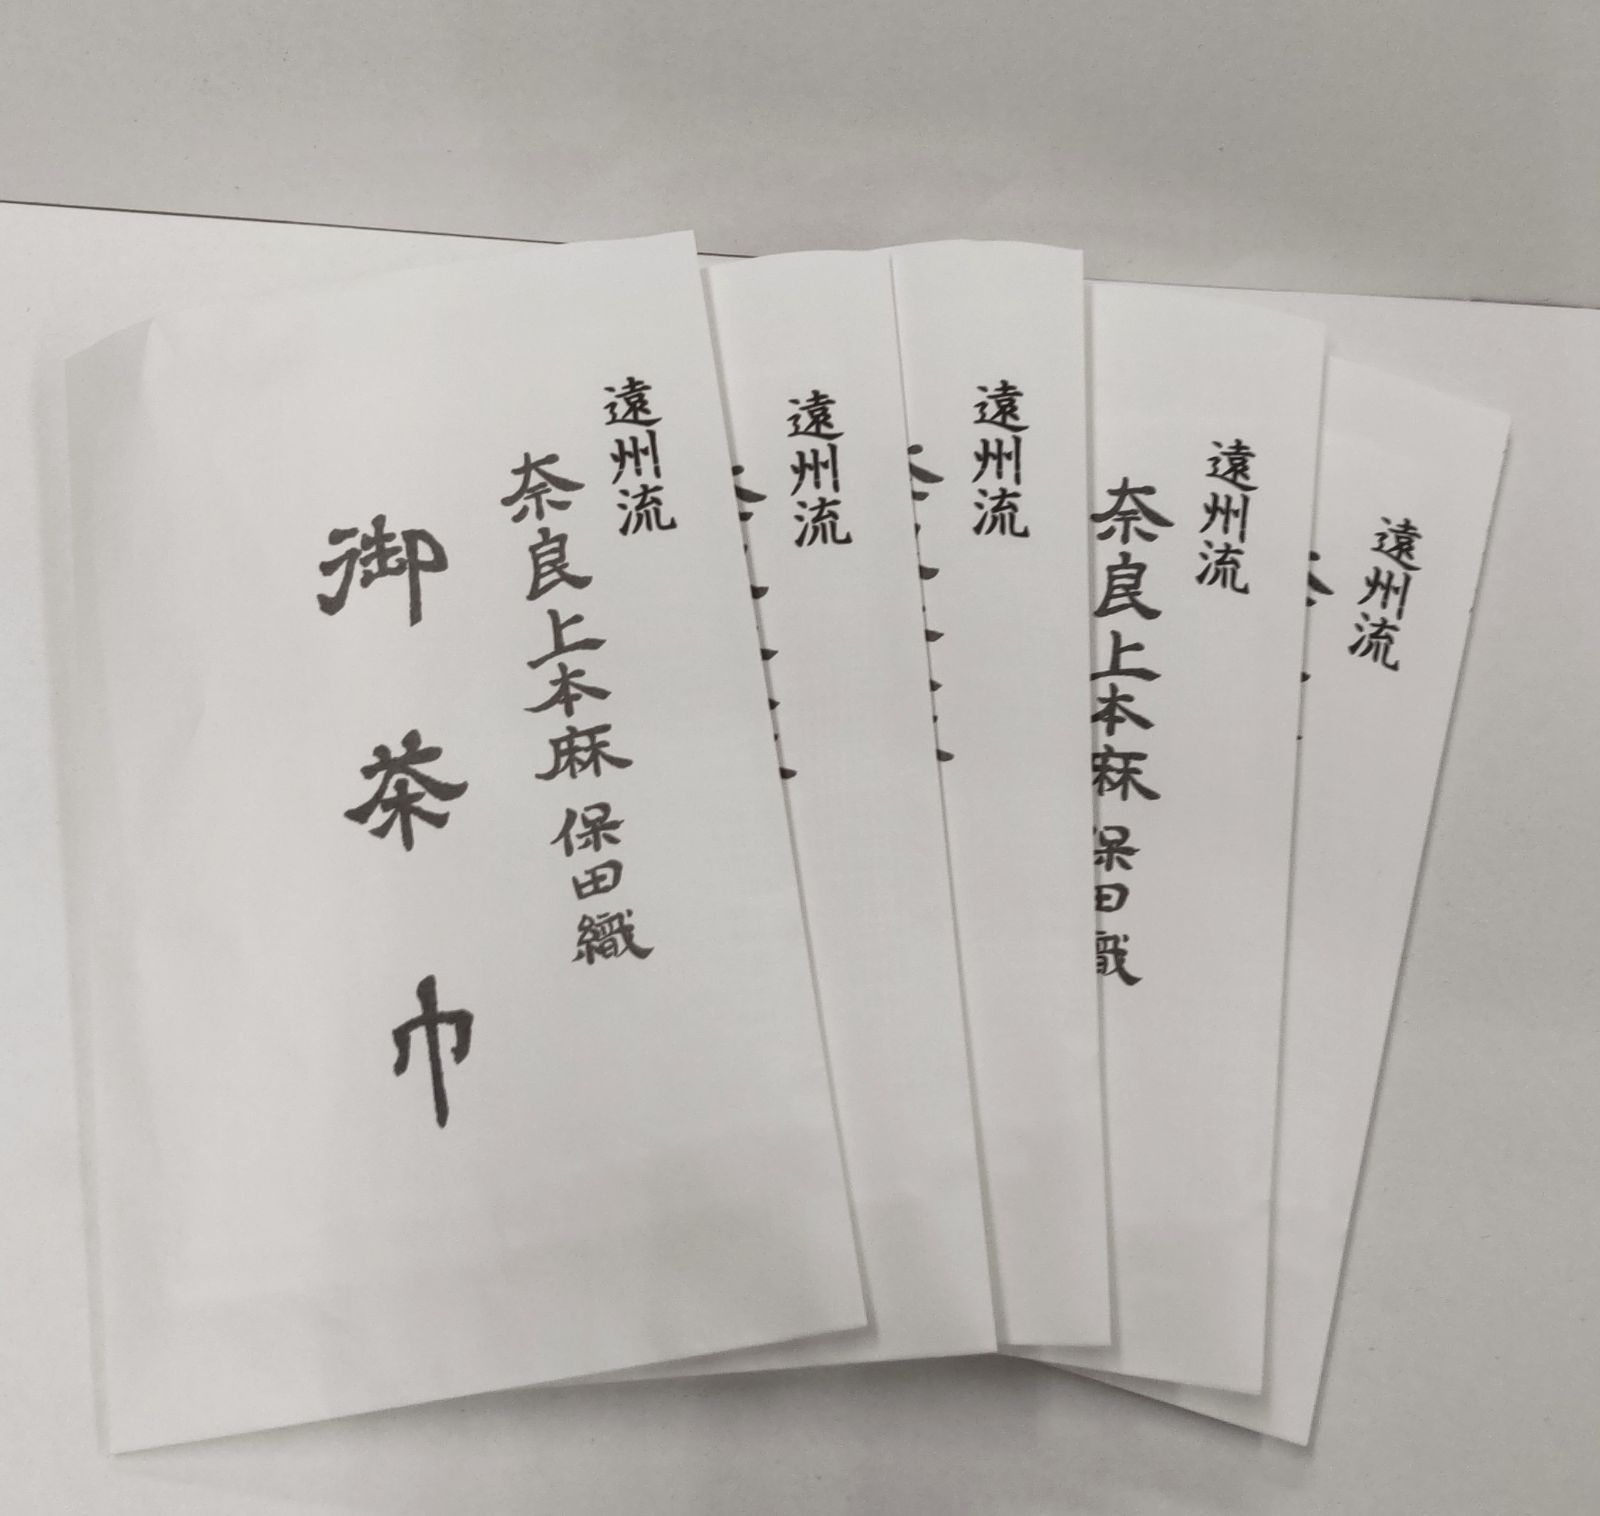 遠州流
奈良上本麻 保田織
御茶巾
遠州流
遠州流
遠州流
奈良上本麻 保田織
遠州流